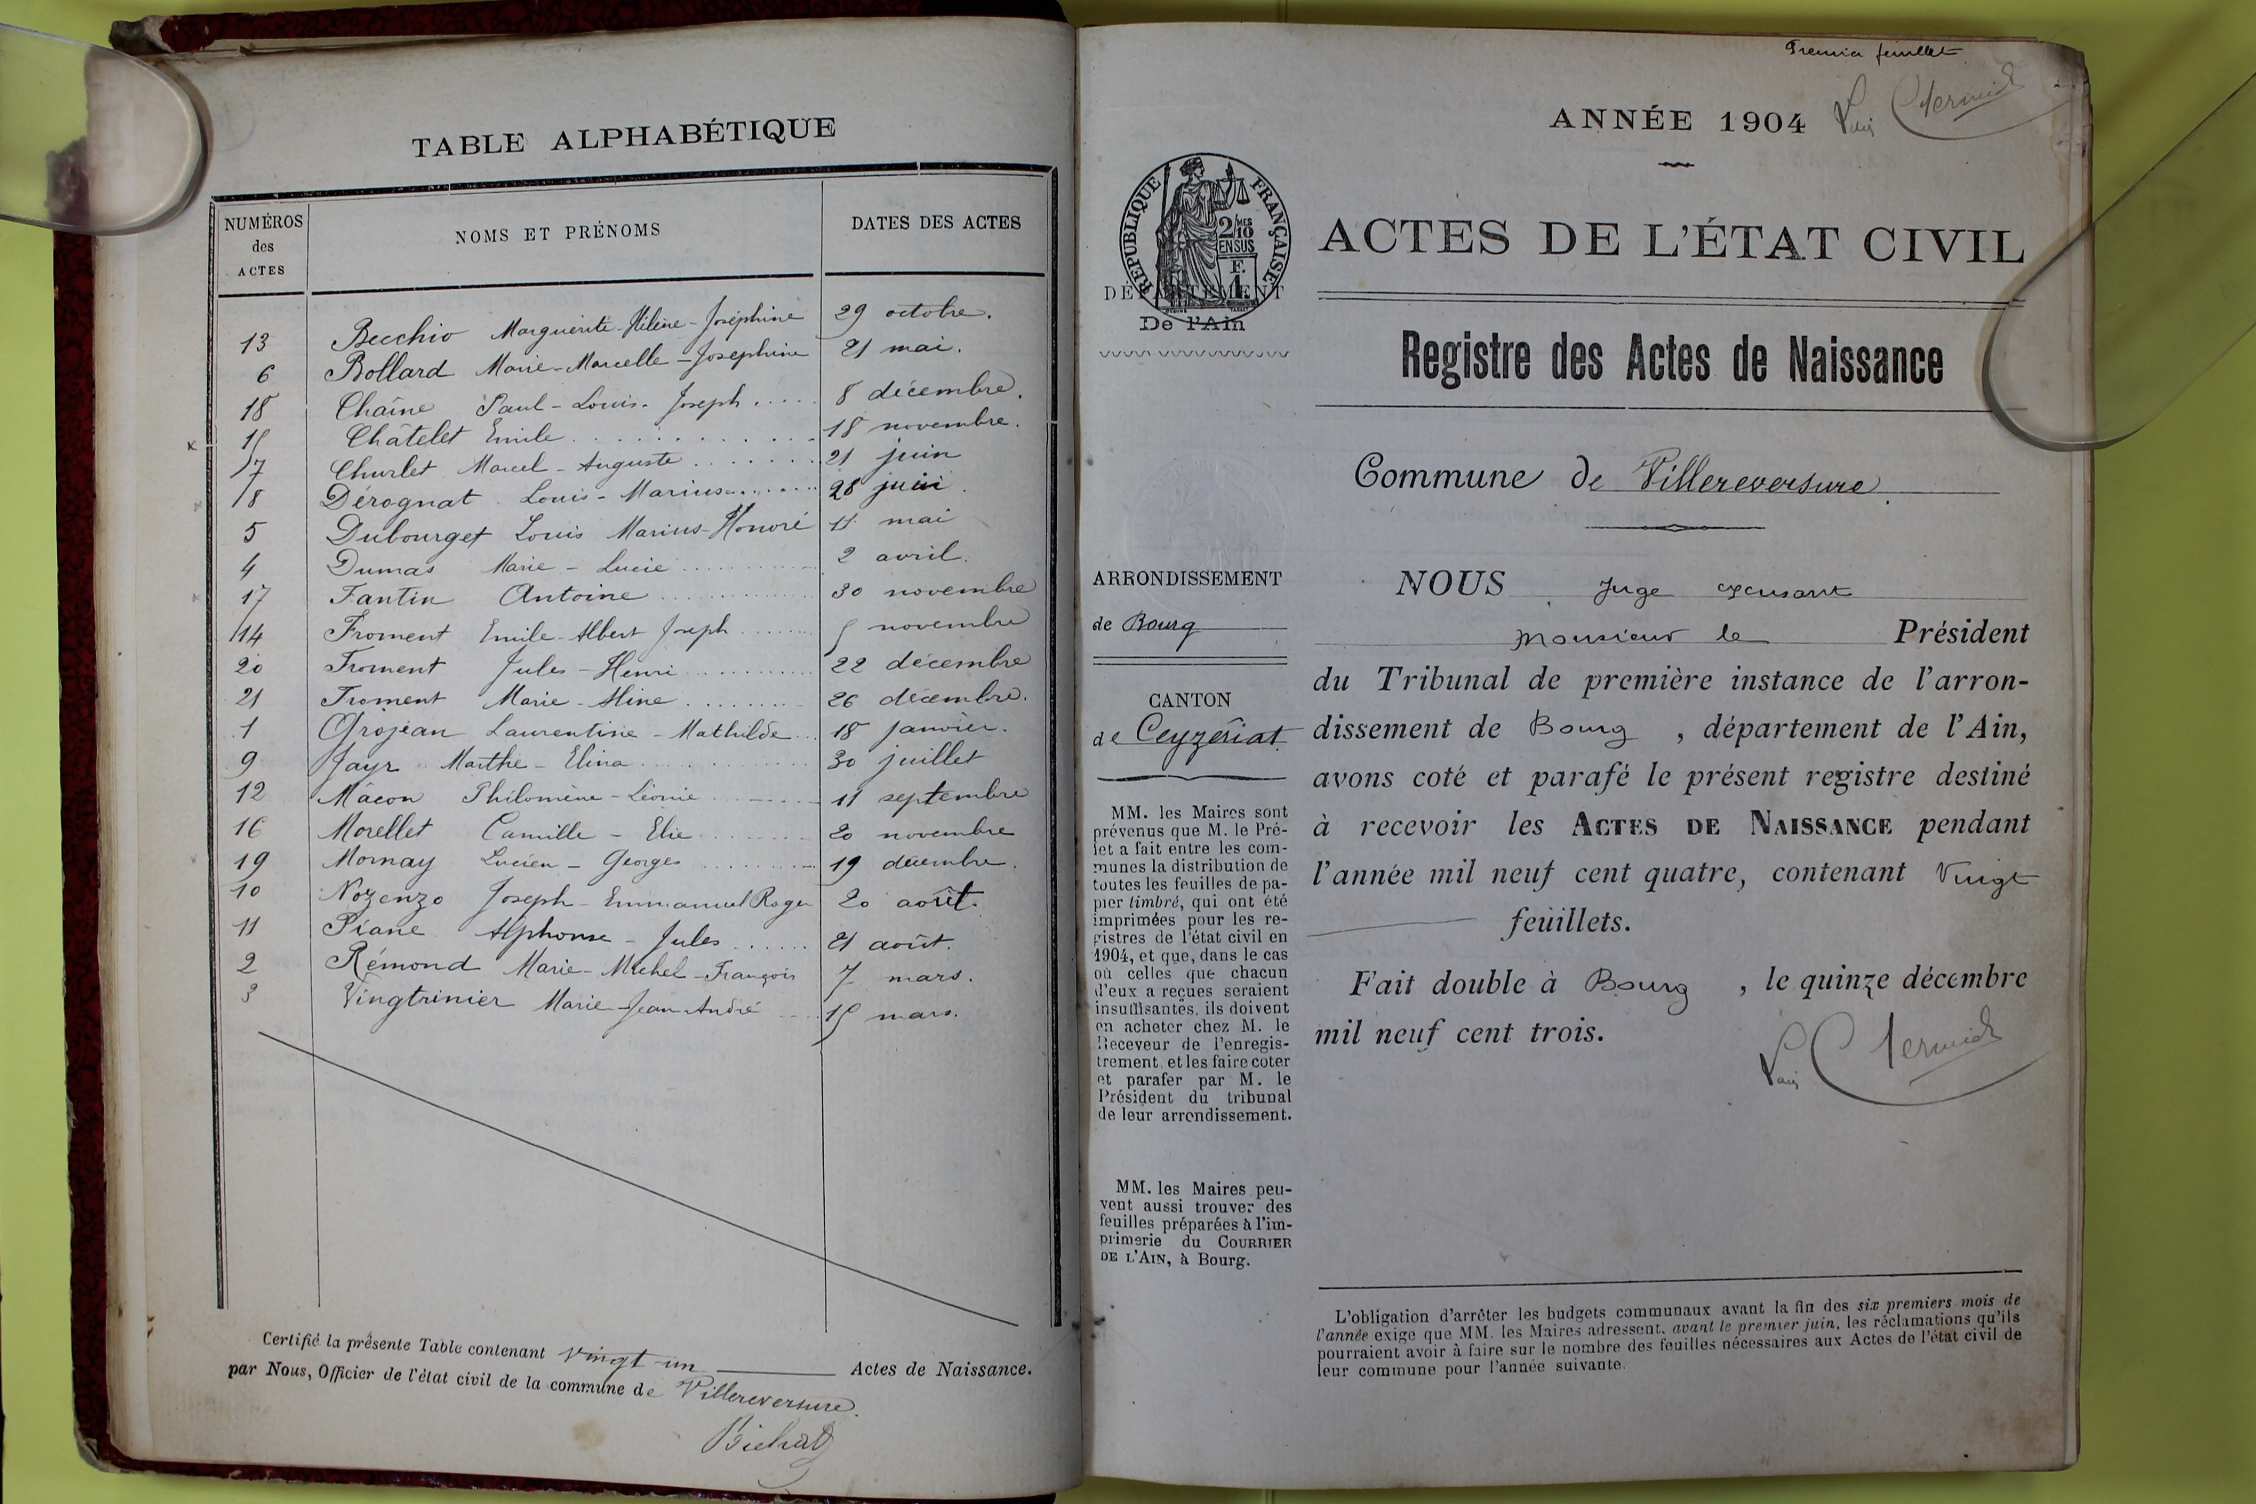 TABLE ALPHABÉTIQUE
NUMÉROS des ACTES
NOMS ET PRÉNOMS
DATES DES ACTES
13 Becchio Marguerite-Hélène-Joséphine 29 octobre.
6 Bollard Marie-Marcelle-Joséphine 21 mai.
18 Chaîne Paul-Louis-Joseph..... 8 décembre.
15 Châtelet Emile............ 18 novembre.
7 Churlet Marcel-Auguste....... 21 juin
8 Dérognat Louis-Marius....... 28 juin.
5 Dubourget Louis Marius-Honoré 11 mai
4 Dumas Marie-Lucie............ 2 avril.
17 Fantin Antoine............ 30 novembre
14 Froment Emile-Albert Joseph........ 5 novembre
20 Froment Jules-Henri............ 22 décembre
21 Froment Marie-Aline......... 26 décembre.
1 Grojean Laurentine-Mathilde... 18 janvier.
9 Jayr Marthe-Elina............ 30 juillet
12 Mâcon Philomène-Léonie........ 11 septembre
16 Morellet Camille-Elie......... 20 novembre
19 Mornay Lucien-Georges......... 19 décembre.
10 Nozenzo Joseph-Emmanuel Roger 20 août.
11 Piane Alphonse-Jules...... 21 août.
2 Rémond Marie-Michel-François 7 mars.
3 Vingtrinier Marie-Jean-André.... 15 mars.
Certifié la présente Table contenant vingt-un Actes de Naissance.
par Nous, Officier de l'état civil de la commune de Villereversure.
Premier feuillet
ANNÉE 1904
RÉPUBLIQUE FRANÇAISE
2/10 MES
EN SUS
F. 1
DÉPARTEMENT
De l'Ain
ACTES DE L'ÉTAT CIVIL
Registre des Actes de Naissance
Commune de Villereversure.
ARRONDISSEMENT
de Bourg
CANTON
de Ceyzériat
MM. les Maires sont
prévenus que M. le Pré-
fet a fait entre les com-
munes la distribution de
toutes les feuilles de pa-
pier timbré, qui ont été
imprimées pour les re-
gistres de l'état civil en
1904, et que, dans le cas
où celles que chacun
d'eux a reçues seraient
insuffisantes, ils doivent
en acheter chez M. le
Receveur de l'enregis-
trement, et les faire coter
et parafer par M. le
Président du tribunal
de leur arrondissement.
MM. les Maires peu-
vent aussi trouver des
feuilles préparées à l'im-
primerie du COURRIER
DE L'AIN, à Bourg.
NOUS Juge
Monsieur le Président
du Tribunal de première instance de l'arron-
dissement de Bourg, département de l'Ain,
avons coté et parafé le présent registre destiné
à recevoir les ACTES DE NAISSANCE pendant
l'année mil neuf cent quatre, contenant Vingt
feuillets.
Fait double à Bourg, le quinze décembre
mil neuf cent trois.
L'obligation d'arrêter les budgets communaux avant la fin des six premiers mois de
l'année exige que MM. les Maires adressent, avant le premier juin, les réclamations qu'ils
pourraient avoir à faire sur le nombre des feuilles nécessaires aux Actes de l'état civil de
leur commune pour l'année suivante.